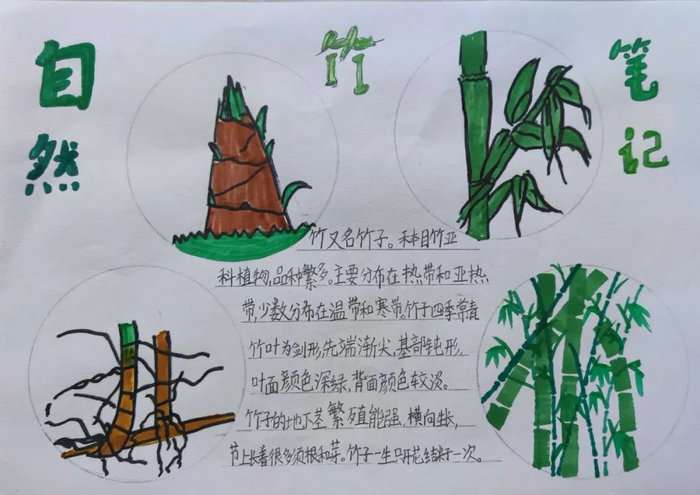 自然
竹
笔记
竹又名竹子。禾本目竹亚
科植物,品种繁多。主要分布在热带和亚热
带,少数分布在温带和寒带,竹子四季常青
竹叶为剑形,先端渐尖,基部钝形,
叶面颜色深绿,背面颜色较淡。
竹子的地下茎繁殖能强,横向生长,
节上长着很多须根和芽。竹子一生只开花结籽一次。